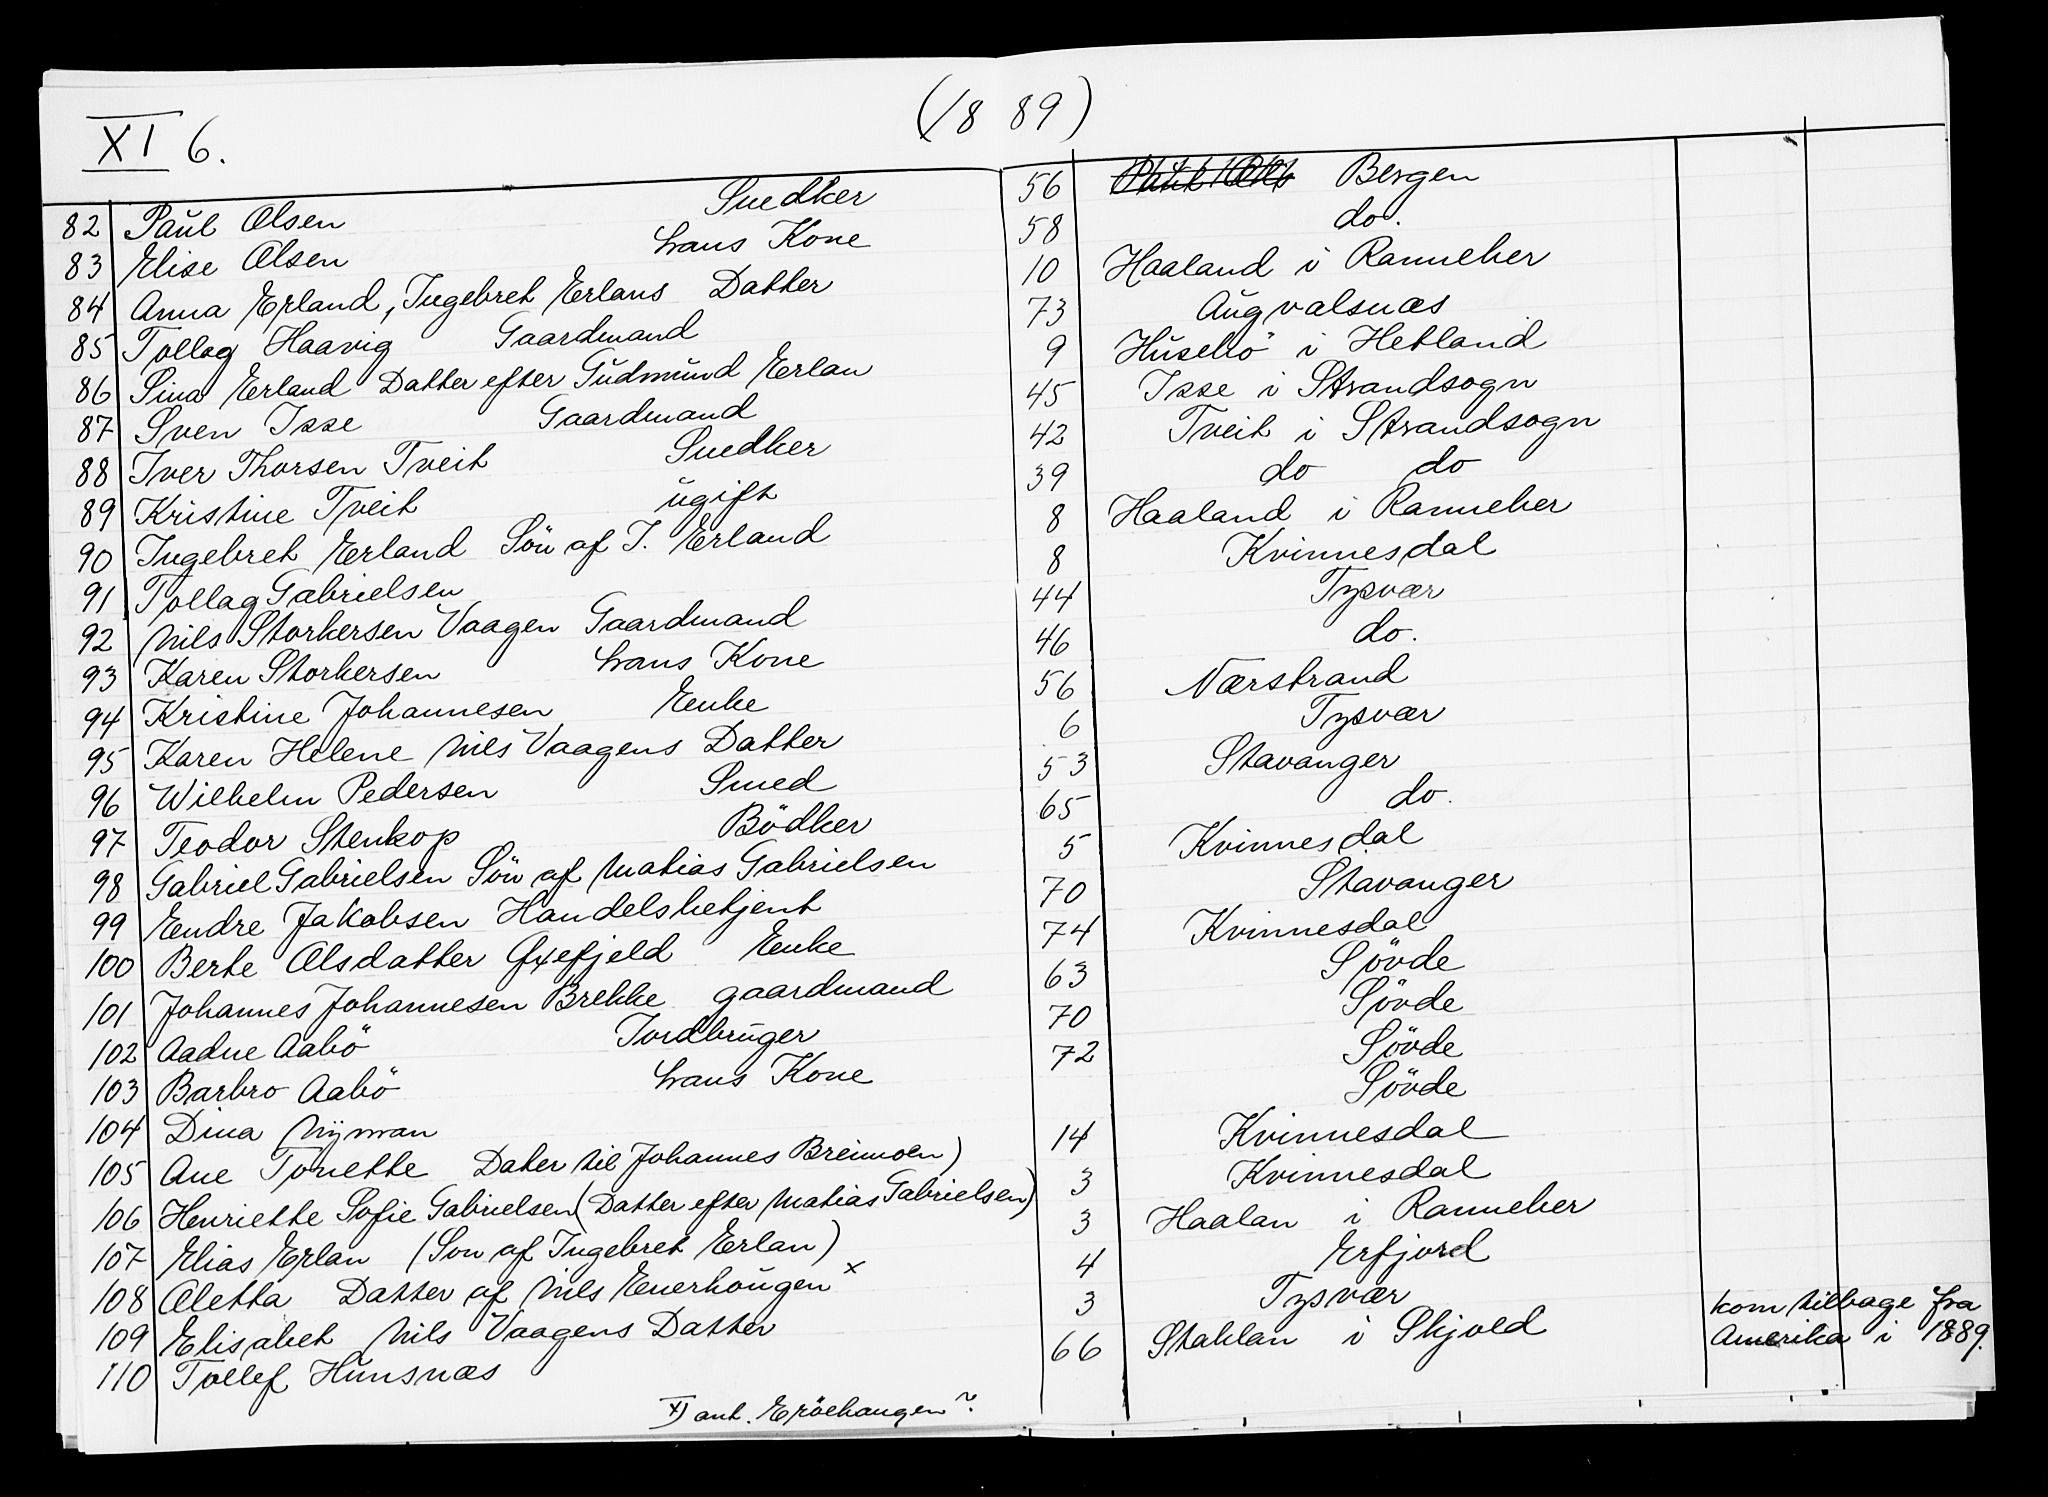 XI 6.
(1889)
82 Paul Olsen Snedker 56 Bergen
83 Elise Olsen hans Kone 58 do.
84 Anna Erland, Ingebret Erlans Datter 10 Haaland i Ranneber
85 Tollag Haavig Gaardmand 73 Augvalsnæs
86 Sina Erland Datter efter Gudmund Erlan 9 Husebö i Hetland
87 Sven Isse Gaardmand 45 Isse i Strandsogn
88 Iver Thorsen Tveit Snedker 42 Tveit i Strandsogn
89 Kristine Tveit ugift 39 do do
90 Ingebret Erland Sön af I. Erland 8 Haaland i Ranneber
91 Tollag Gabrielsen 8 Kvinnesdal
92 Nils Storkersen Vaagen Gaardmand 44 Tysvær
93 Karen Storkersen hans Kone 46 do.
94 Kristine Johannesen Enke 56 Nærstrand
95 Karen Helene Nils Vaagens Datter 6 Tysvær
96 Wilhelm Pedersen Smed 53 Stavanger
97 Teodor Stenkop Bödker 65 do.
98 Gabriel Gabrielsen Sön af Matias Gabrielsen 5 Kvinnesdal
99 Endre Jakobsen Handelsbetjent 70 Stavanger
100 Berte Olsdatter Oxefjeld Enke 74 Kvinnesdal
101 Johannes Johannesen Brekke gaardmand 63 Sövde
102 Aadne Aabö Jordbruger 70 Sövde
103 Barbro Aabö hans Kone 72 Sövde
104 Dina Nyman Sövde
105 Ane Tonette Dater til Johannes Breimoen) 14 Kvinnesdal
106 Henriette Sofie Gabrielsen (Datter efter Matias Gabrielsen) 3 Kvinnesdal
107 Elias Erlan (Son af Ingebret Erlan) 3 Haalan i Ranneber
108 Oletta Datter af Nils Enerhougen x 4 Erfjord
109 Elisabet Nils Vaagens Datter 3 Tysvær kom tilbage fra
110 Tollef Hunsnæs 66 Staklan i Skjold Amerika i 1889.
x) ant. Eröehaugen?